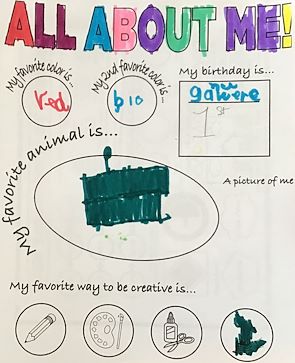 ALL ABOUT ME!
My favorite color is...
red
My 2nd favorite color is...
blo
My birthday is...
nu
gawere
1st
My favorite animal is...
A picture of me
My favorite way to be creative is...